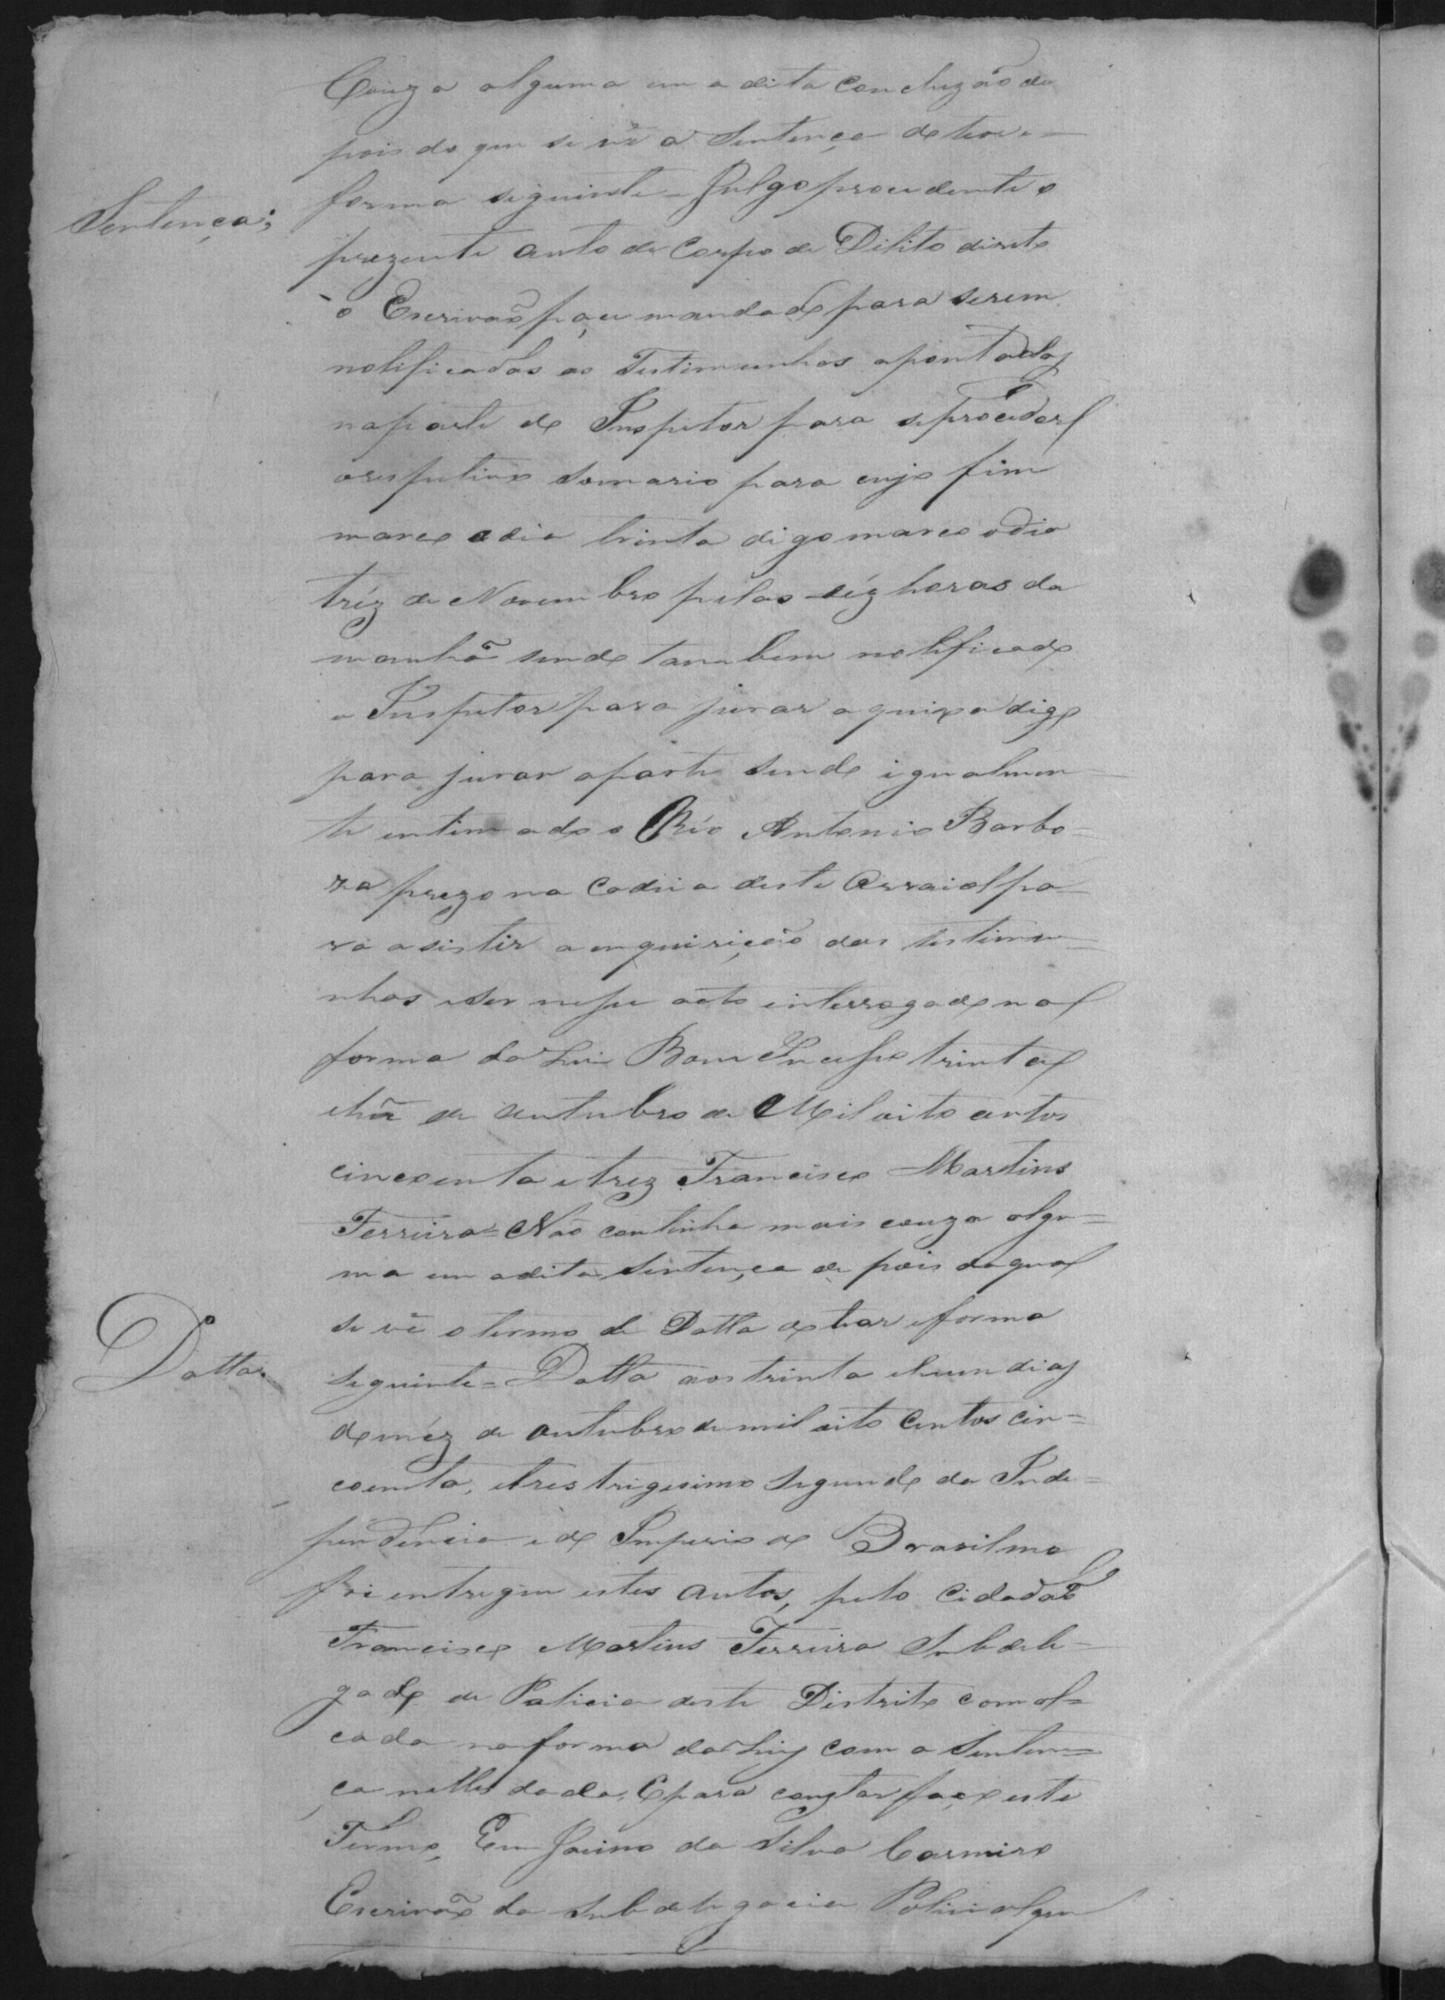 Couza alguma em a dita concluzão de
pois do que se vê a Sentença do theor e
forma seguinte = Julgo procedente o
Sentença;
prezente auto de Corpo de Dilito direto
o Escrivão paçe mandado para serem
notificadas as Testimunhas apontadas
na parte do Inspetor para se proceder
o respetivo Somario para cujo fim
marco o dia trinta digo marco o dia
tréz de Novembro pelas déz horas da
manhã sendo tambem notificado
o Inspetor para jurar a queixa digo
para jurar a parte sendo igualmen
te entimado o Réo Antonio Barbo=
za prezo na Cadeia deste Arraial pa=
ra asistir a enquirição das testimu=
nhas e ser nesse acto interrogado na
forma da Lei Bom Sucesso trinta e
hũ de outubro de Mil oito centos
cincoenta e trez Francisco Martins
Ferreira = Não continha mais couza algu=
ma em a dita Sentença de pois da qual
se vê o termo de Datta do thear e forma
Datta.
seguinte = Datta aos trinta e hum dias
do méz de outubro de mil oito Centos cin=
coenta, e tres trigesimo segundo da Inde=
pendencia e do Imperio do Brasil me
foi entregue estes autos, pelo Cidadão
Francisco Martins Ferreira Subdele=
gado de Policia deste Distrito com al=
çada na forma da Ley com a Senten=
ça nelles dada, E para constar faço este
Termo, Eu Jacino da Silva Carmiro
Escrivão da Subdelegacia Policial que